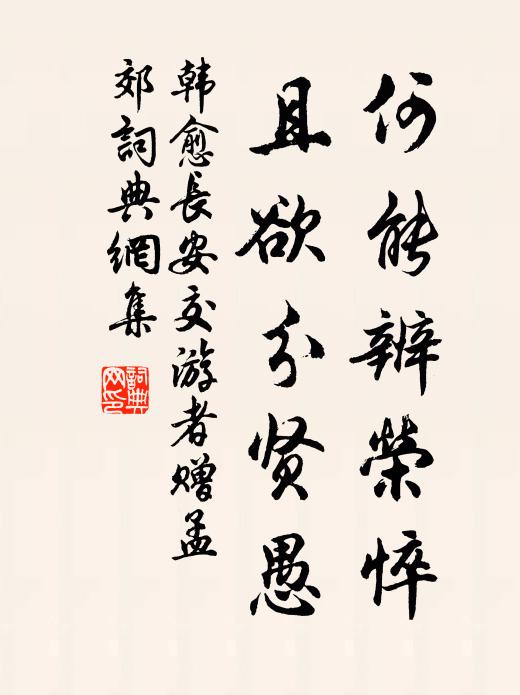 何能辨榮悴
且欲分贤愚
韩愈長安交游者赠孟
郊詞典網集
詞典
网印